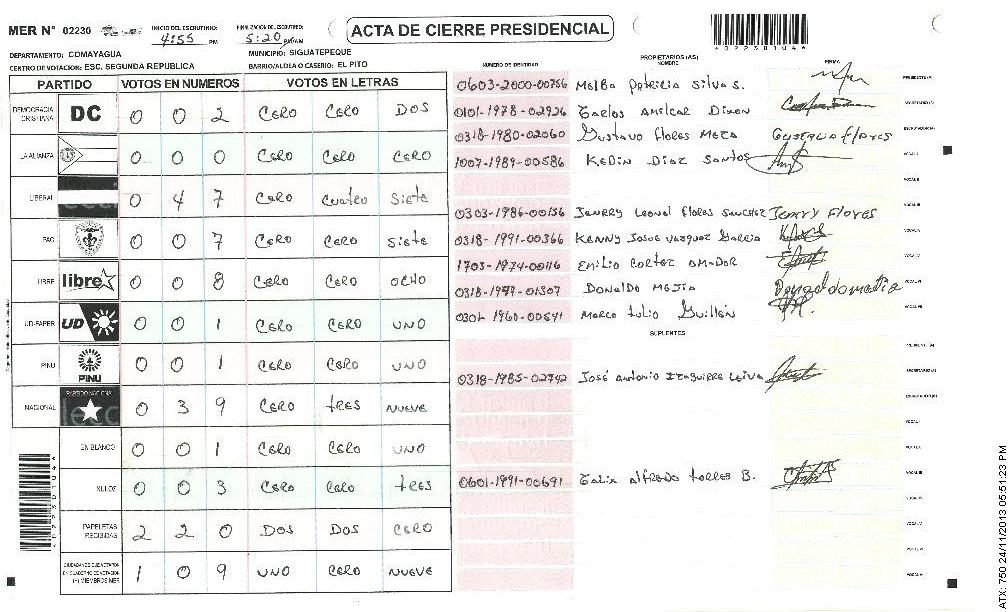 MER N° 02230 INICIO DEL ESCRUTINIO: 4:55 PM FINALIZACION DEL ESCRUTINIO: 5:20 PM/AM
ACTA DE CIERRE PRESIDENCIAL
DEPARTAMENTO: COMAYAGUA MUNICIPIO: SIGUATEPEQUE
CENTRO DE VOTACION: ESC. SEGUNDA REPUBLICA BARRIO/ALDEA O CASERIO: EL PITO
PARTIDO VOTOS EN NUMEROS VOTOS EN LETRAS
DEMOCRACIA CRISTIANA DC 0 0 2 CERO CERO DOS
LA ALIANZA 0 0 0 CERO CERO CERO
LIBERAL 0 4 7 CERO CUATRO SIETE
PAC 0 0 7 CERO CERO SIETE
LIBRE libre 0 0 8 CERO CERO OCHO
UD-FAPER UD 0 0 1 CERO CERO UNO
PINU PINU 0 0 1 CERO CERO UNO
NACIONAL PARTIDO NACIONAL 0 3 9 CERO TRES NUEVE
EN BLANCO 0 0 1 CERO CERO UNO
NULOS 0 0 3 CERO CERO TRES
PAPELETAS RECIBIDAS 2 2 0 DOS DOS CERO
CIUDADANOS QUE VOTARON EN CUADERNO DE VOTACION (+) MIEMBROS MER 1 0 9 UNO CERO NUEVE
NUMERO DE IDENTIDAD PROPIETARIOS (AS) NOMBRE FIRMA
0603-2000-00756 Melba Patricia Silva S. PRESIDENTE (A)
0101-1978-02926 Carlos Amilcar Dixon SECRETARIO (A)
0318-1980-02060 Gustavo Flores Meza Gustavo Flores ESCRUTADOR (A)
1007-1989-00586 Kedin Diaz Santos VOCAL I
VOCAL II
0303-1986-00156 Jenrry Leonel Flores Sanchez Jenrry Flores VOCAL III
0318-1991-00366 Kenny Josue Vazquez Garcia VOCAL IV
1703-1974-00116 Emilio Cortez Amador VOCAL V
0318-1979-01307 Donaldo Mejia VOCAL VI
0301-1960-00541 Marco Tulio Guillén VOCAL VII
SUPLENTES
PRESIDENTE (A)
0318-1985-02742 José Antonio Izaguirre Leiva SECRETARIO (A)
ESCRUTADOR (A)
VOCAL I
VOCAL II
0601-1991-00691 Alfredo Torres B. VOCAL III
VOCAL IV
VOCAL V
VOCAL VI
VOCAL VII
ATX: 750 24/11/2013 05:51:23 PM